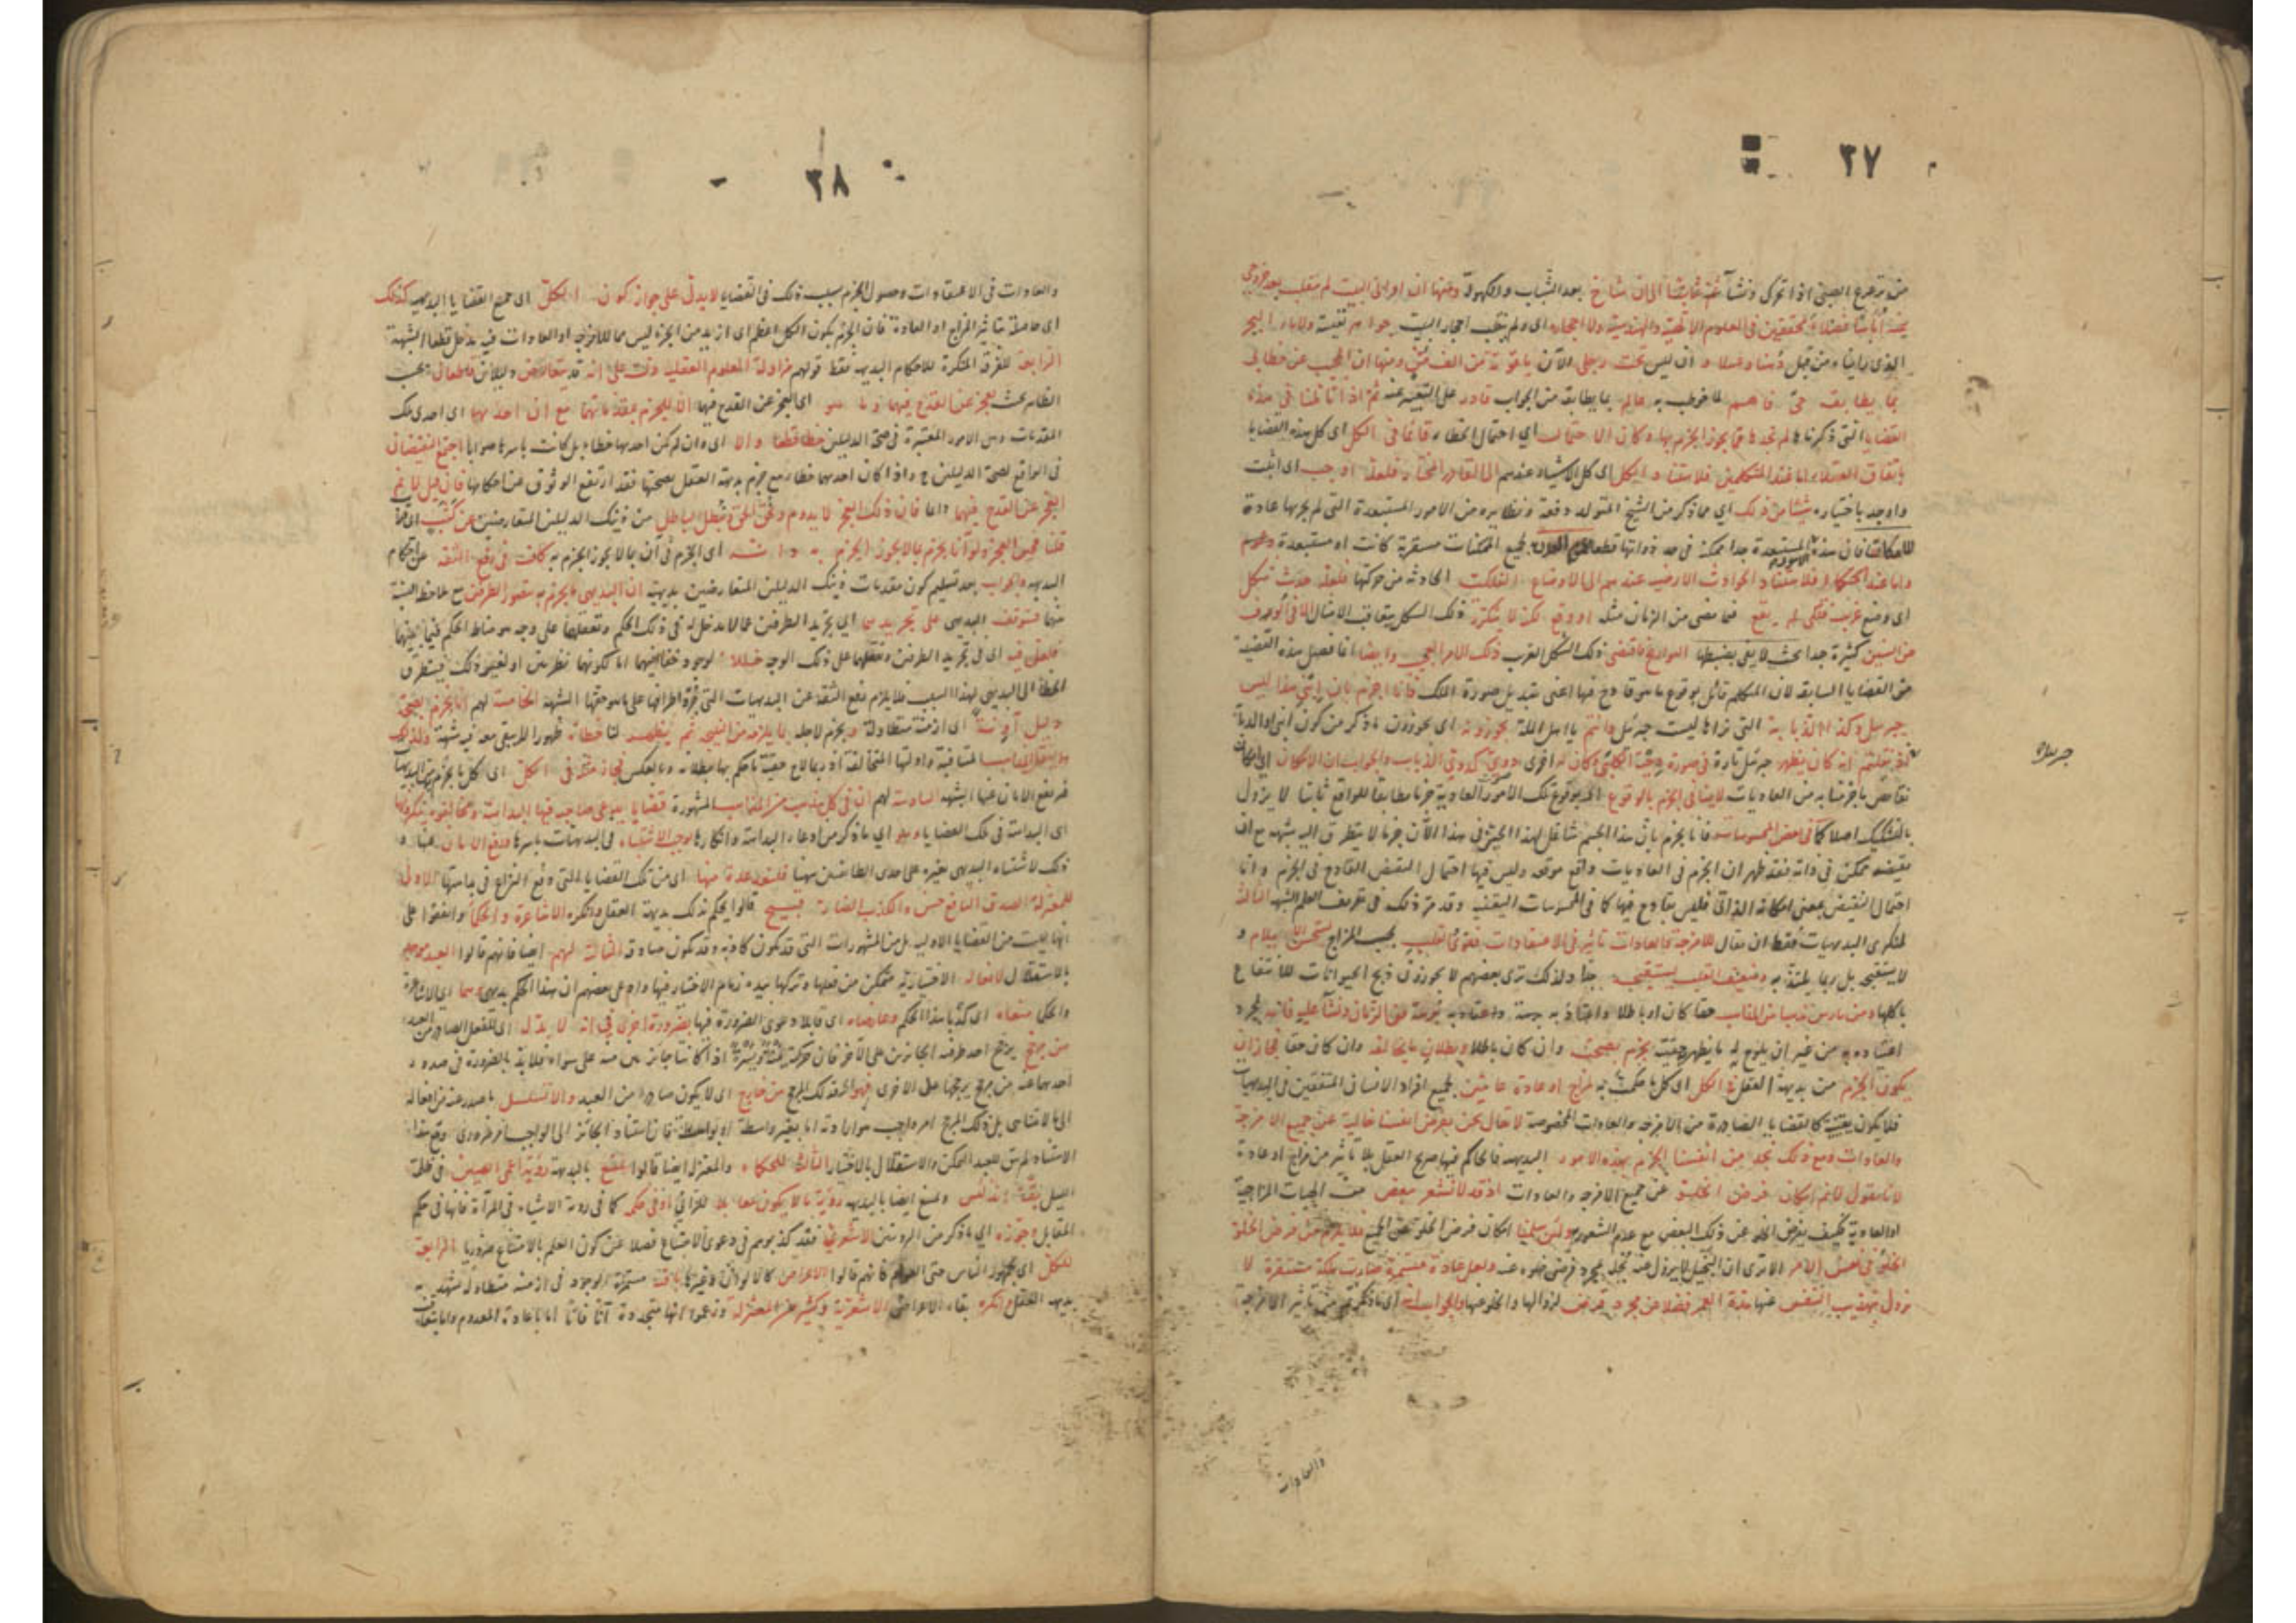 ٣٧
من ترعرع الصبي اذا تحرك ونشأ الى ان شاخ بعد الشباب والكهولة ومنها ان اوانى البيت لم تنقلب بعد خروجى
عنه أناسا فضلاء محققين فى العلوم الالهية والهندسية ولا احجاره اى ولم تنقلب احجار البيت جواهر نفيسة ولا ماء البحر
الذى رايناه من قبل دهنا وعسلا و ان ليس تحت رجلى الآن ياقوتة من الف منّ ومنها ان المجيب عن خطابى
بما يطابقه حى فاهم لما خوطب به عالم بما يطابقه من الجواب قادر على التعبير عنه ثم اذا تاملنا فى هذه
القضايا التى ذكرناها لم نجدها مما يجوز الجزم بها وكان الاحتمال اي احتمال الخطاء قائما فى الكل اى كل هذه القضايا
باتفاق العقلاء اما عند المتكلمين فلاستناد الكل اى كل الاشياء عندهم الى القادر المختار فلعله اوجب اى اثبت
واوجد باختياره شيئا من ذلك اي مما ذكر من الشيخ المتولد دفعة ونظايره من الامور المستبعدة التى لم يجر بها عادة
فان هذه الامور المستبعدة جدا ممكنة فى حد ذواتها قطعا لجميع الممكنات مستقربة كانت او مستبعدة
واما عند الحكماء فلاستناد الحوادث الارضية عندهم الى الاوضاع الفلكية الحادثة من حركتها فلعله حدث شكل
اى وضع غريب فلكى لم يقع فيما مضى من الزمان مثله او وقع لكنه لا يتكرر ذلك الشكل بتعاقب الامثال الا فى ألوف
من السنين كثيرة جدا بحيث لا يفى بضبطها التواريخ فاقتضى ذلك الشكل الغريب ذلك الامر العجيب وايضا انما فصل هذه القضية
من القضايا السابقة لان المتكلم قائل بوقوع ما هو قادح فيها اعنى تبديل صورة الملك فانا نجزم بان ابنى هذا ليس
جبرئيل وكذا الذبابة التى نراها ليست جبرئيل وانتم يا اهل الملة تجوزونه اى تجوزون ما ذكر من كون ابنى او الذبابة
اذ نقلتم انه كان يظهر جبرئيل تارة فى صورة دحية الكلبى وكان له اخرى دوى كدوى الذباب والجواب ان الامكان
نقائض ما جزمنا به من العاديات لا ينافى الجزم بالوقوع اى بوقوع تلك الامور العادية جزما مطابقا للواقع ثابتا لا يزول
بالتشكيك اصلا كما فى بعض المحسوسات فانا نجزم بان هذا الجسم شاغل لهذا الحيز فى هذا الآن جزما لا يتطرق اليه شبهة مع ان
نقيضه ممكن فى ذاته فقد ظهر ان الجزم فى العاديات واقع موقعه وليس فيها احتمال النقيض القادح فى الجزم واما
احتمال النقيض بمعنى امكانه الذاتى فليس بقادح فيها كما فى المحسوسات اليقينية وقد مر ذلك فى تعريف العلم الشبهة الثالثة
لمنكرى البديهيات فقط ان يقال للامزجة والعادات تأثير فى الاعتقادات فقوى القلب بحسب المزاج يستحسن الايلام و
لا يستقبحه بل ربما يلتذ به وضعيف القلب يستقبحه جدا ولذلك ترى بعضهم لا يجوزون ذبح الحيوانات للانتفاع
باكلها ومن مارس مذهبا من المذاهب حقا كان او باطلا واعتاد به برهة من الزمان ونشأ عليه فانه بمجرد
اعتياده به من غير ان يلوح له ما يظهر حقيته يجزم بصحته وان كان باطلا وبطلان ما يخالفه وان كان حقا فجاز ان
يكون الجزم من بديهة العقل فى الكل اى كل ما حكمت به لمزاج او عادة عامين لجميع افراد الانسان المتفقين فى البديهيات
فلا يكون يقينية كالقضايا الصادرة من الامزجة والعادات المخصوصة لا يقال نحن نفرض انفسنا خالية عن جميع الامزجة
والعادات ومع ذلك نجد من انفسنا الجزم بهذه الامور البديهية فالحاكم فيها صريح العقل بلا تأثير من مزاج او عادة
لانا نقول لا نم امكان فرض الخلو عن جميع الامزجة والعادات اذ قد لا نشعر ببعض من الهيات المزاجية
او العادية فكيف نفرض الخلو عن ذلك البعض مع عدم الشعور به ولئن سلمنا امكان فرض الخلو عن الجميع فلا يلزم من فرض الخلو
الخلو فى نفس الامر الا ترى ان البخيل لا يزول عنه بخله بمجرد فرض خلوه عنه ولعل عادة مستمرة صارت ملكة مستقرة لا
تزول بتهذيب النفس عنها مدة العمر فضلا عن مجرد فرض لزوالها والخلو عنها والجواب انه اى ما ذكرتم من تأثير الامزجة
جبرئيل
والعادات
٣٨
والعادات فى الاعتقادات وحصول الجزم بسبب ذلك فى القضايا لا يدل على جواز كون الكل اى جميع القضايا البديهية كذلك
اى حاصلة بتاثير المزاج او العادة فان الجزم بكون الكل اعظم اى ازيد من الجزء ليس مما للامزجة او العادات فيه مدخل قطعا الشبهة
الرابعة للفرق المنكرة للاحكام البديهية فقط قولهم مزاولة العلوم العقلية دلت على انه قد يتعارض دليلان قاطعان بحسب
الظاهر بحيث نعجز عن القدح فيهما وما هو اى العجز عن القدح فيهما الا للجزم بمقدماتهما مع ان احدهما اى احدى تلك
المقدمات ومن الامور المعتبرة فى صحة الدليلين خطا قطعا والا اى وان لم يكن احدهما خطاء بل كانت باسرها صوابا اجتمع النقيضان
فى الواقع لصحة الدليلين ح واذا كان احدهما خطاء مع جزم بديهة العقل بصحتها فقد ارتفع الوثوق عن احكامها فان قيل لا نم
العجز عن القدح فيهما دائما فان ذلك العجز لا يدوم وعن كثب
قلنا فحين العجز ولو آنا يجزم بما لا يجوز الجزم به اى الجزم فى آن بما لا يجوز الجزم به كاف فى رفع الثقة عن احكام
البديهة والجواب بعد تسليم كون مقدمات ذينك الدليلين المتعارضين بديهية ان البديهى ما يجزم به بتصور الطرفين مع ملاحظة النسبة
بينهما فيتوقف البديهى على تجريدهما اي تجريد الطرفين عما لا مدخل له فى ذلك الحكم وتعقلهما على وجه هو مناط الحكم فيما بينهما
فلعل فيه اى فى تجريد الطرفين وتعقلهما على ذلك الوجه خللا لوجود خفاء فيهما اما لكونهما نظريين او لغير ذلك فيتطرق
الخطأ الى البديهى لهذا السبب فلا يلزم رفع الثقة عن البديهيات التى جرد اطرافها على ما هو حقها الشبهة الخامسة لهم انا نجزم بصحة
دليل آونة اى ازمنة متطاولة ونجزم لاجله بما يلزمه من النتيجة ثم يظهر لنا خطاؤه ظهورا لا يبقى معه فيه شبهة ولذلك
المتنافية وادلتها المتخالفة اذ ربما لاح حقية ما حكم بها ببطلانه وبالعكس فجاز مثله فى الكل اى كل ما نجزم به من البديهيات
فيرتفع الامان عنها الشبهة السادسة لهم ان فى كل مذهب من المذاهب المشهورة قضايا يدعى صاحبه فيها البداهة ومخالفوه ينكرونها
اى البداهة فى تلك القضايا وهو اي ما ذكر من ادعاء البداهة وانكارها يوجب الاشتباه فى البديهيات باسرها ورفع الامان عنها و
ذلك لاشتباه البديهى بغيره على احدى الطائفتين ههنا فلنعد عدة منها اى من تلك القضايا التى وقع النزاع فى بداهتها الاولى
للمعتزلة الصدق النافع حسن والكذب الضار قبيح قالوا يحكم بذلك بديهة العقل وانكره الاشاعرة والحكماء واتفقوا على
انها ليست من القضايا الاولية بل من المشهورات التى قد تكون كاذبة وقد تكون صادقة الثانية لهم ايضا فانهم قالوا العبد موجد
بالاستقلال لافعاله الاختيارية متمكن من فعلها وتركها بيده زمام الاختيار فيها وادعى بعضهم ان هذا الحكم بديهى وهما اى الاشاعرة
والحكماء منعاه اى كذبا هذا الحكم وعارضاه اى قابلا دعوى الضرورة فيها بضرورة اخرى فى انه لا بد له اى للفعل الصادر من العبد
من مرجح يرجح احد طرفيه الجائزين على الآخر فان حركته يمنة ويسرة اذا كانتا جائزتين منه على سواء فلا بد بالضرورة فى صدور
احدهما عنه من مرجح يرجحها على الاخرى فهو اى ذلك المرجح من خارج اى لا يكون صادرا من العبد والا تسلسل ما صدر عنه من افعاله
الى ما لا يتناهى بل ذلك المرجح امر واجب صوابا وته اما بغير واسطة او بواسطة فان استناد الجائز الى الواجب امر ضرورى ومع هذا
الاستناد لم يبق للعبد التمكن والاستقلال بالاختيار الثالثة للحكماء والمعتزلة ايضا قالوا يمتنع بالبديهة رؤية اعمى الصين فى ظلمة
الليل بقة بأندلس ويمتنع ايضا بالبديهة رؤية ما لا يكون مقابلا للرائي او فى حكمه كما فى رؤية الاشياء فى المرآة فانها فى حكم
المقابل وجوزه اي ما ذكر من الرؤيتين الاشعرية فقد كذبوهم فى دعوى الامتناع فضلا عن كون العلم بالامتناع ضروريا الرابعة
للكل اى لجمهور الناس حتى العوام فانهم قالوا الاعراض كالالوان وغيرها باقية مستمرة الوجود فى ازمنة متطاولة شهد به
بديهة العقل وانكره بقاء الاعراض الاشعرية وكثير من المعتزلة وزعموا انها متجددة آنا فآنا اما باعادة المعدوم واما بتعاقب